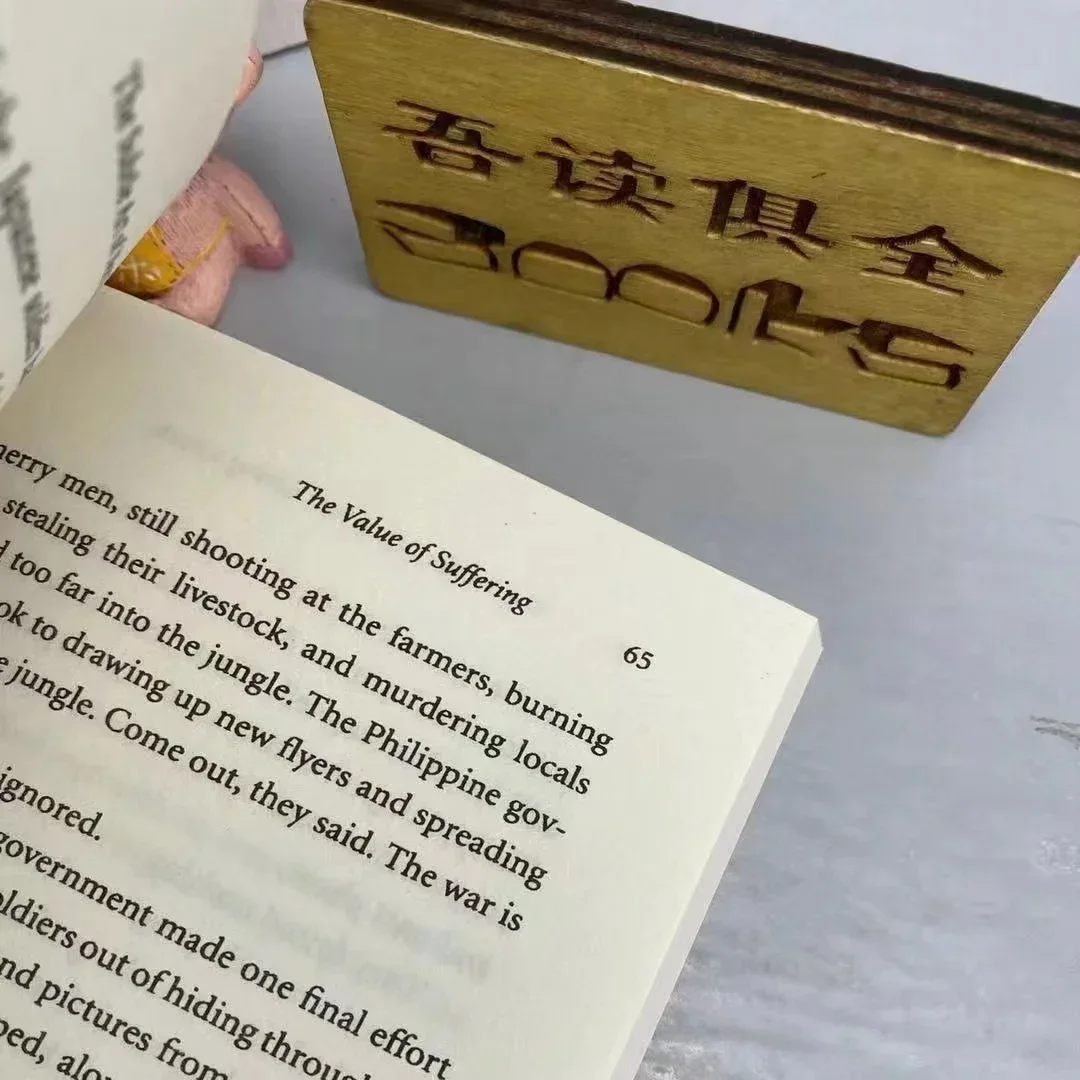 吾读俱全
Books
The Value of Suffering
65
merry men, still shooting at the farmers, burning
stealing their livestock, and murdering locals
too far into the jungle. The Philippine gov-
to drawing up new flyers and spreading
jungle. Come out, they said. The war is
ignored.
government made one final effort
soldiers out of hiding through
and pictures from